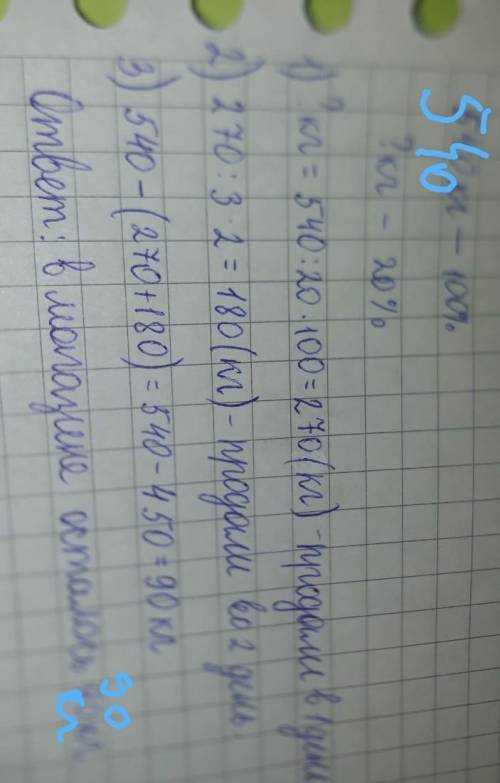 540 кг – 100%
? кг – 20%
1) ? кг = 540:20·100=270(кг) - продали в 1 день
2) 270:3·2=180(кг) - продали во 2 день
3) 540-(270+180)=540-450=90 кг
Ответ: в магазине осталось 90 кг